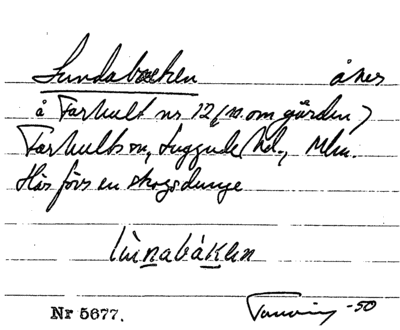 Lundabacken åker
å Farhult nr 12 (n. om gården)
Farhults sn, Luggude hd., Mlm.
Här förr en skogsdunge
lùnabákən
Nr 5677. -50